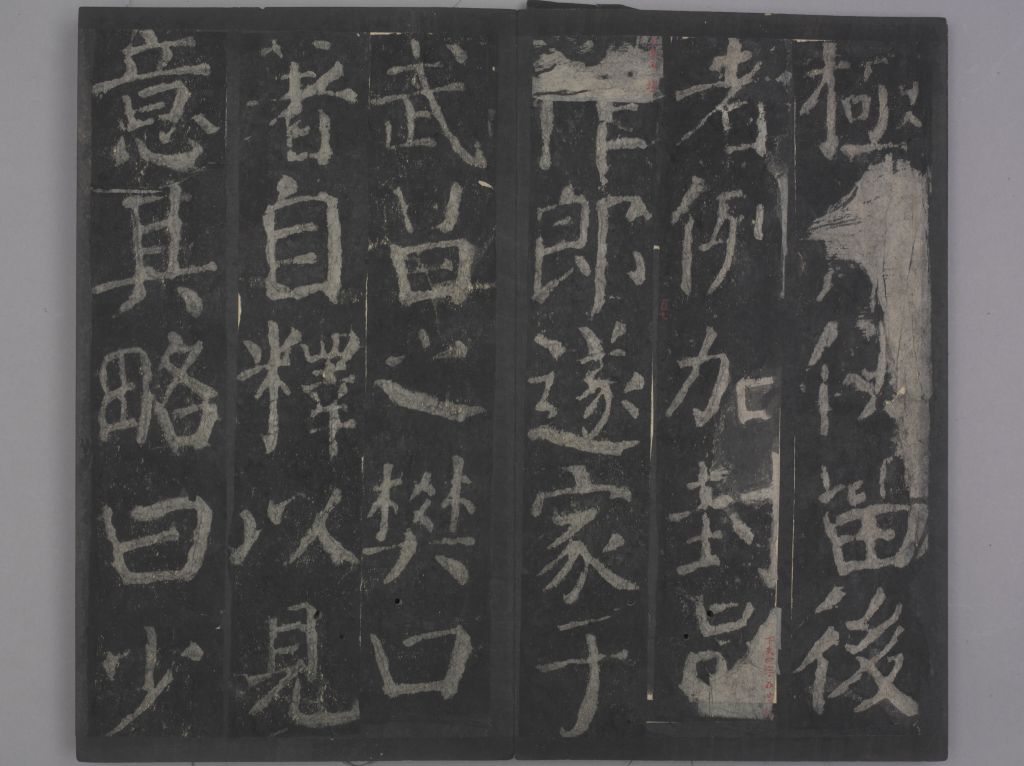 極使留後
者例加封邑
作郎遂家于
武昌之樊口
著自釋以見
意其略曰少